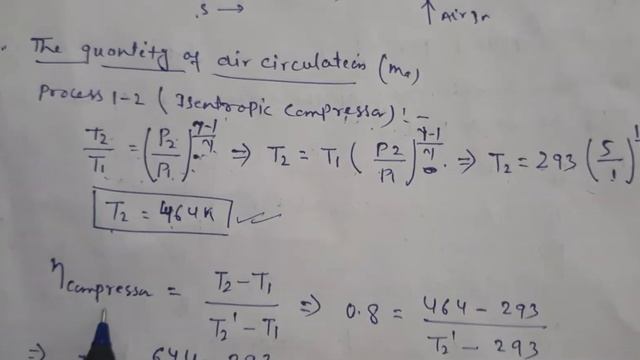 S → ↑ Air In
The quantity of air circulation (ma)
Process 1-2 (Isentropic Compressor) :-
T2/T1 = (P2/P1)^(γ-1/γ) ⇒ T2 = T1 (P2/P1)^(γ-1/γ) ⇒ T2 = 293 (5/1)
T2 = 464K
ηcompressor = T2-T1/T2'-T1 ⇒ 0.8 = 464-293/T2'-293
⇒